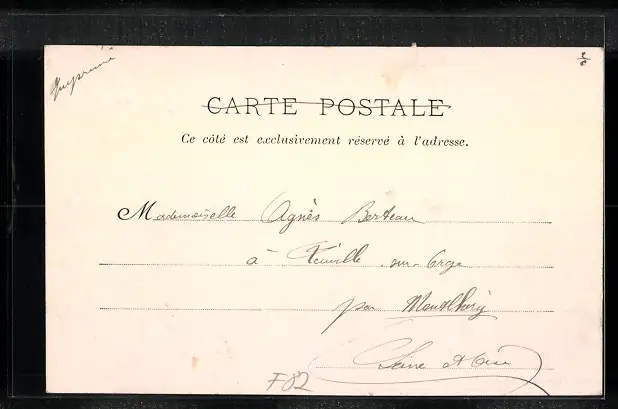 Imprimé
2
6
CARTE POSTALE
Ce côté est exclusivement réservé à l'adresse.
Mademoiselle Agnès Berteau
à Leuville sur-Orge
par Montlhéry
Seine et Oise
F82